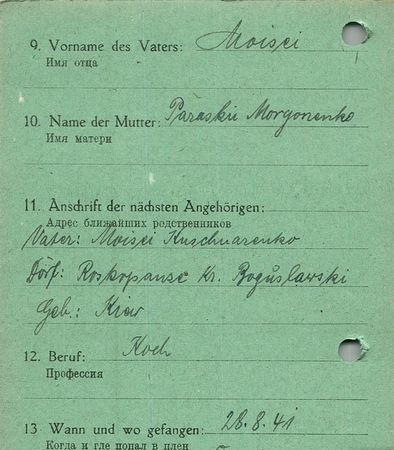 9. Vorname des Vaters: Moisei
Имя отца
10. Name der Mutter: Paraskii Morgonenko
Имя матери
11. Anschrift der nächsten Angehörigen:
Адрес ближайших родственников
Vater: Moisei Kuschnarenko
Dorf: Roskopanse Kr. Boguslawski
Geb.: Kiew
12. Beruf: Koch
Профессия
13 Wann und wo gefangen: 28.8.41
Когда и где попал в плен